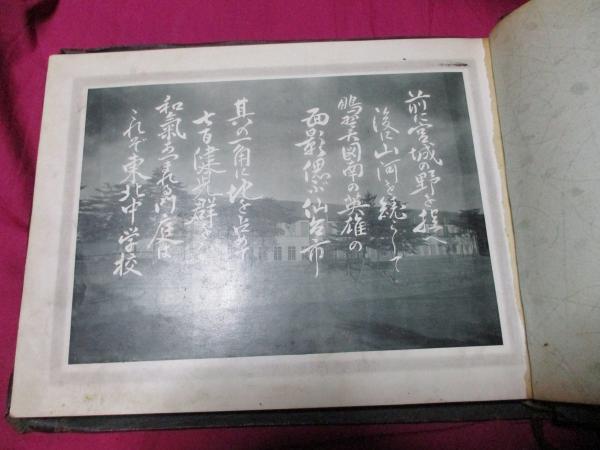 前に宮城の野を控へ
後に山河を繞らして
鵬翼図南の英雄の
面影偲ぶ仙台市
其の一角に地を占めて
七百健児群がる
和氣あふれる門庭は
これぞ東北中学校